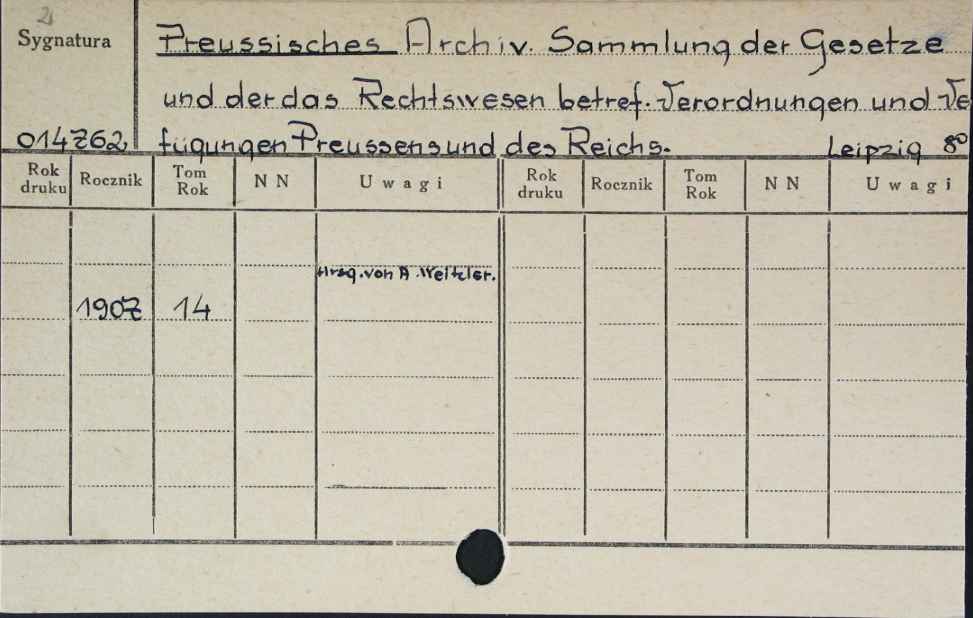 2
Sygnatura
Preussisches Archiv. Sammlung der Gesetze
und der das Rechtswesen betref. Verordnungen und Ve
014762 fügungen Preussens und des Reichs. Leipzig 8°
Rok druku Rocznik Tom Rok N N Uwagi Rok druku Rocznik Tom Rok N N Uwagi
Hrsg. von A.
1907 14